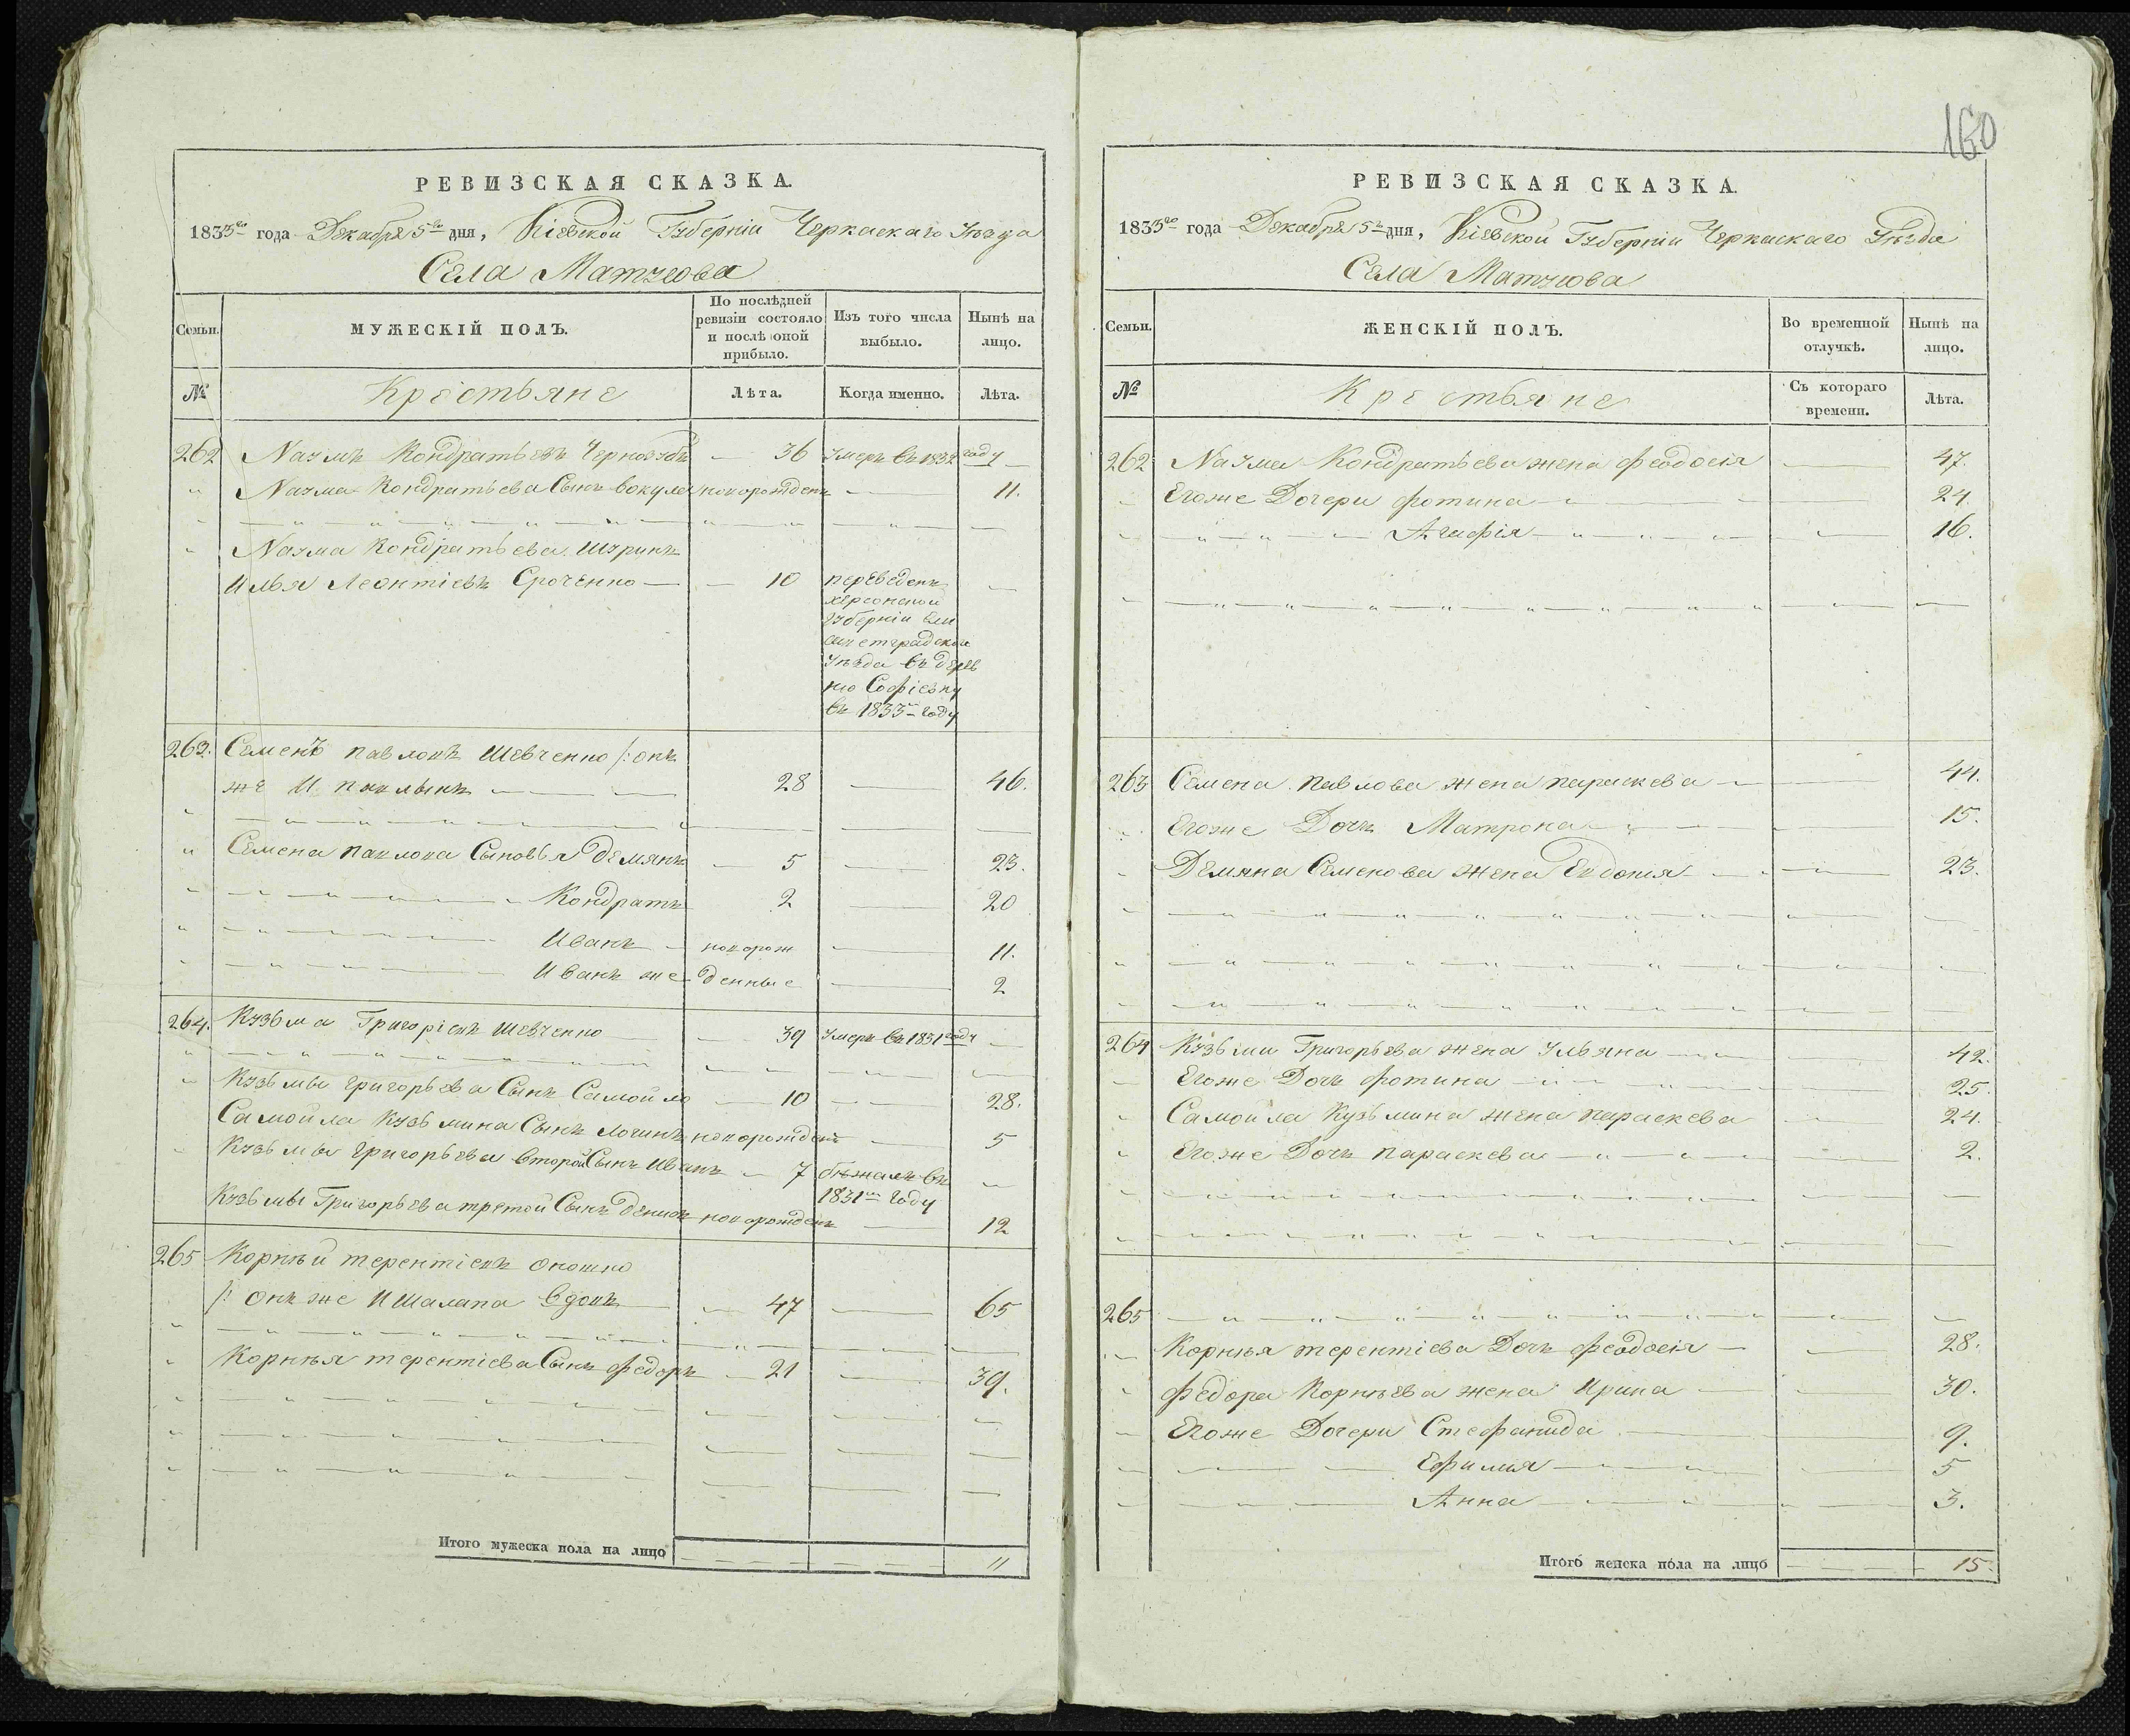 160
РЕВИЗСКАЯ СКАЗКА.
1835го года Декабря 5го дня, Кіевской Губерніи Черкаскаго Уѣзда
Села Матусова
Семьи.
МУЖЕСКІЙ ПОЛЪ.
По послѣдней ревизіи состояло и послѣ оной прибыло.
Изъ того числа выбыло.
Нынѣ на лицо.
№
Крестьяне
Лѣта.
Когда именно.
Лѣта.
262 Наумъ Кондратьевъ Чернозубъ — 36 Умеръ въ 1832 году —
" Наума Кондратьева Сынъ Вокула новорожденъ — 11.
Наума Кондратьева Шуринъ
Илья Леонтіевъ Сроченко — 10 переведенъ
херсонской
губерніи Ели
саветградскои
Уѣзда въ дерев
ню Софіевку
въ 1833м году
263. Семенъ павловъ Шевченко /: онъ
же И — 28 — 46.
" Семена павлова Сыновья Демянъ — 5 — 23.
Кондратъ 2 — 20
Иванъ — новорож — 11.
Иванъ же — денные — 2
264. Кузьма Григоріевъ Шевченко — 39 Умеръ въ 1831 году —
Кузьмы григорьева Сынъ Самойло — 10 — 28.
Самойла Кузьмина Сынъ Логинъ новорожденъ — 5
Кузьмы григорьева второй Сынъ Иванъ — 7 бѣжалъ въ —
1831м году
Кузьмы Григорьева третой Сынъ Денисъ новорожденъ — 12
265 Корнѣй терентіевъ
/: онъ же И Шалапа вдовъ — 47 — 65
Корнѣя терентіева Сынъ федоръ — 21 — 39.
Итого мужеска пола на лицо 11
РЕВИЗСКАЯ СКАЗКА.
1835го года Декабря 5го дня, Кіевской Губерніи Черкаскаго Уѣзда
Села Матусова
Семьи.
ЖЕНСКІЙ ПОЛЪ.
Во временной отлучкѣ.
Нынѣ на лицо.
№
Крестьяне
Съ котораго времени.
Лѣта.
262 Наума Кондратьева жена феодосія — 47.
Егоже Дочери фотина — 24
Агафія — 16.
263 Семена павлова жена параскева — 44.
Егоже Дочь Матрона — 15.
Демяна Семенова жена Евдокія — 23.
264 Кузьмы Григорьева жена Ульяна — 42.
Егоже Дочь фотина — 25.
Самойла Кузьмина жена параскева — 24.
Егоже Дочь параскева — 2.
265
Корнѣя терентіева Дочь Феодосія — 28.
федора Корнѣева жена Ирина — 30.
Егоже Дочери Стефанида — 9.
Ефимія — 5
Анна — 3.
Итого женска пола на лицо 15.